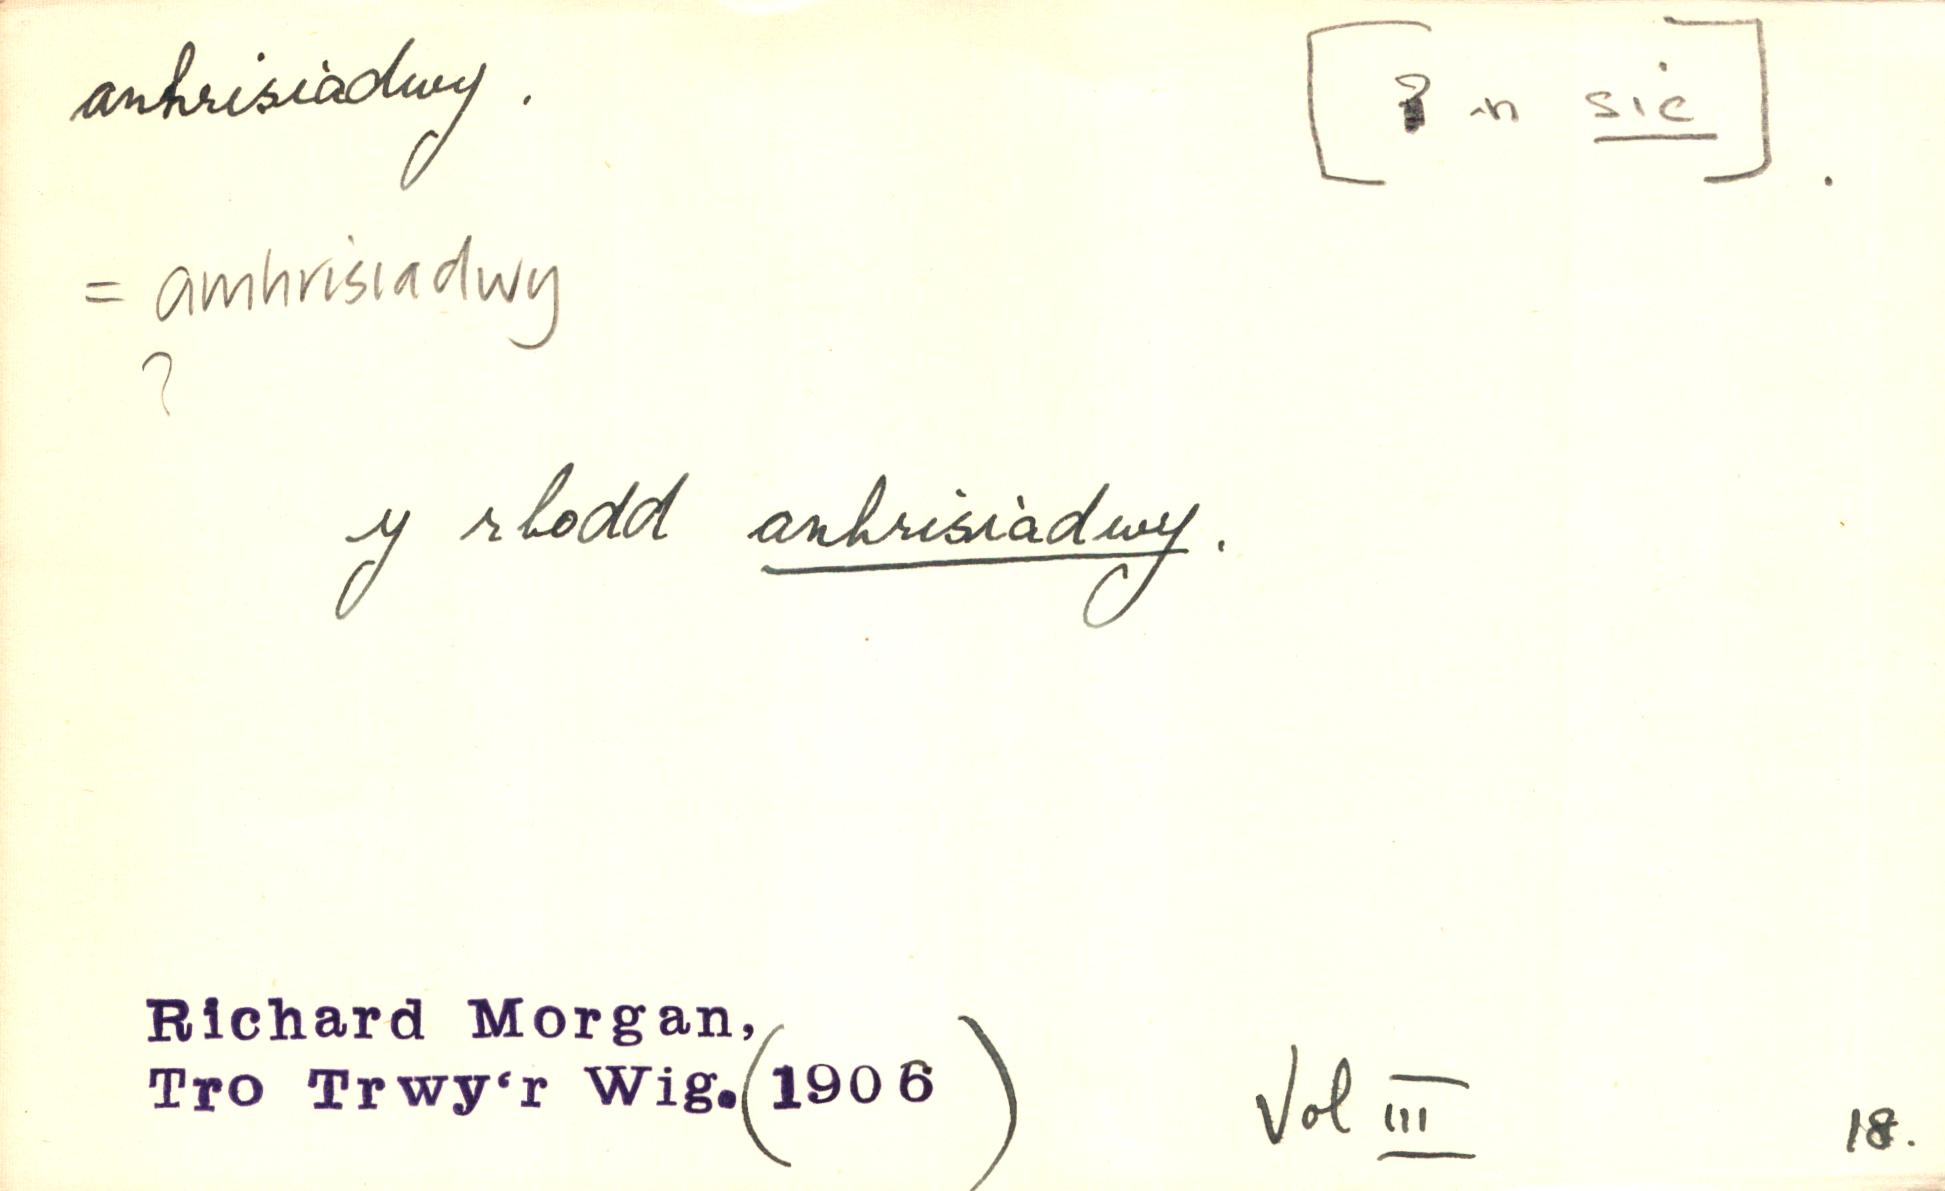 anhrisiadwy. [? n sic].
= amhrisiadwy
?
y rhodd anhrisiadwy.
Richard Morgan,
Tro Trwy‘r Wig. (1906) Vol III 18.